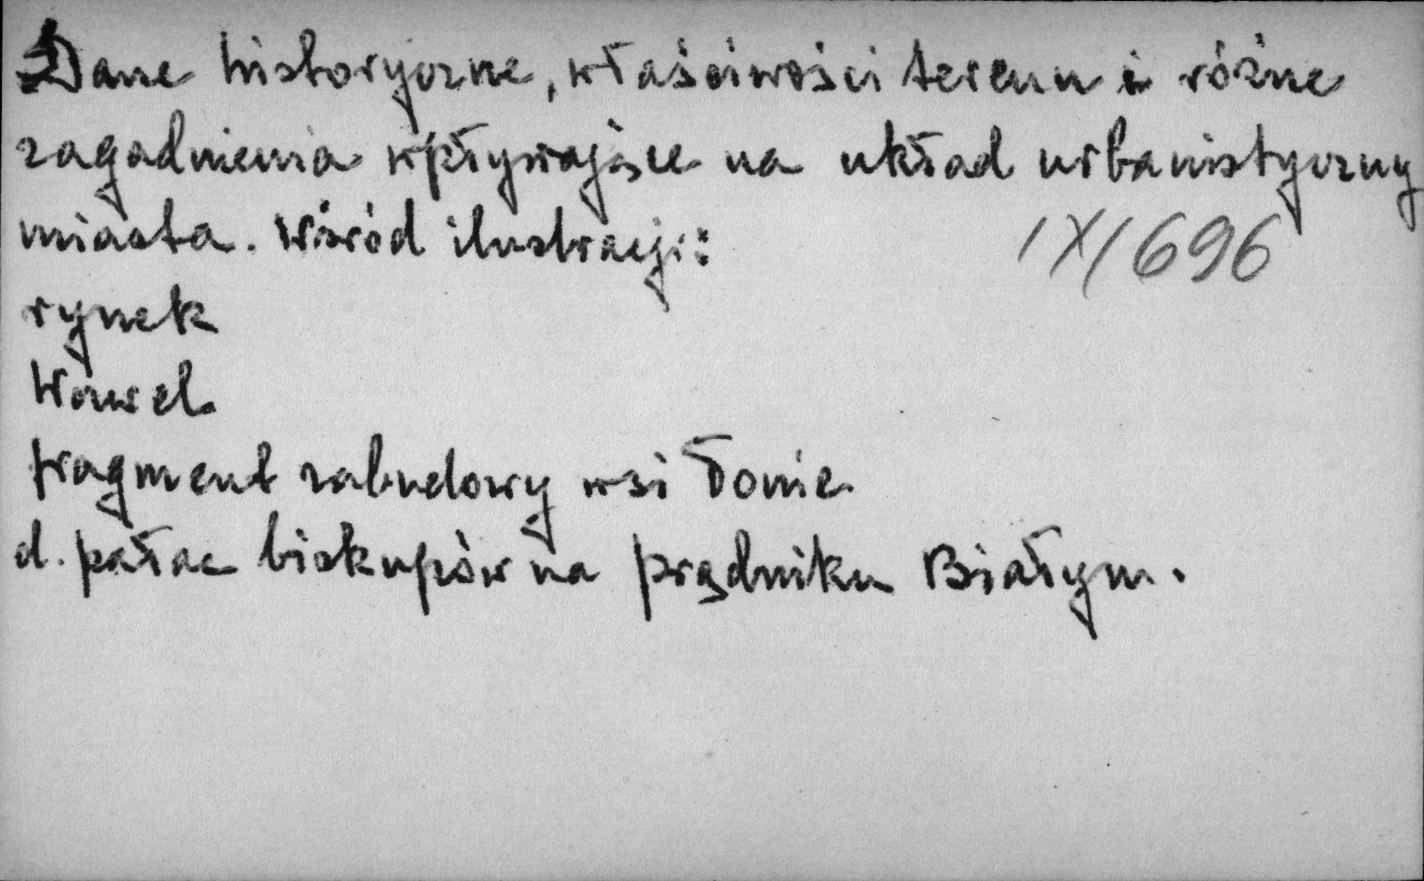 Dane historyczne, właściwości terenu i różne
zagadnienia wpływające na układ urbanistyczny
miasta. Wśród ilustracji:
IX/696
rynek
Wawel
fragment zabudowy wsi Tonie
d. pałac biskupów na prądniku Białym.